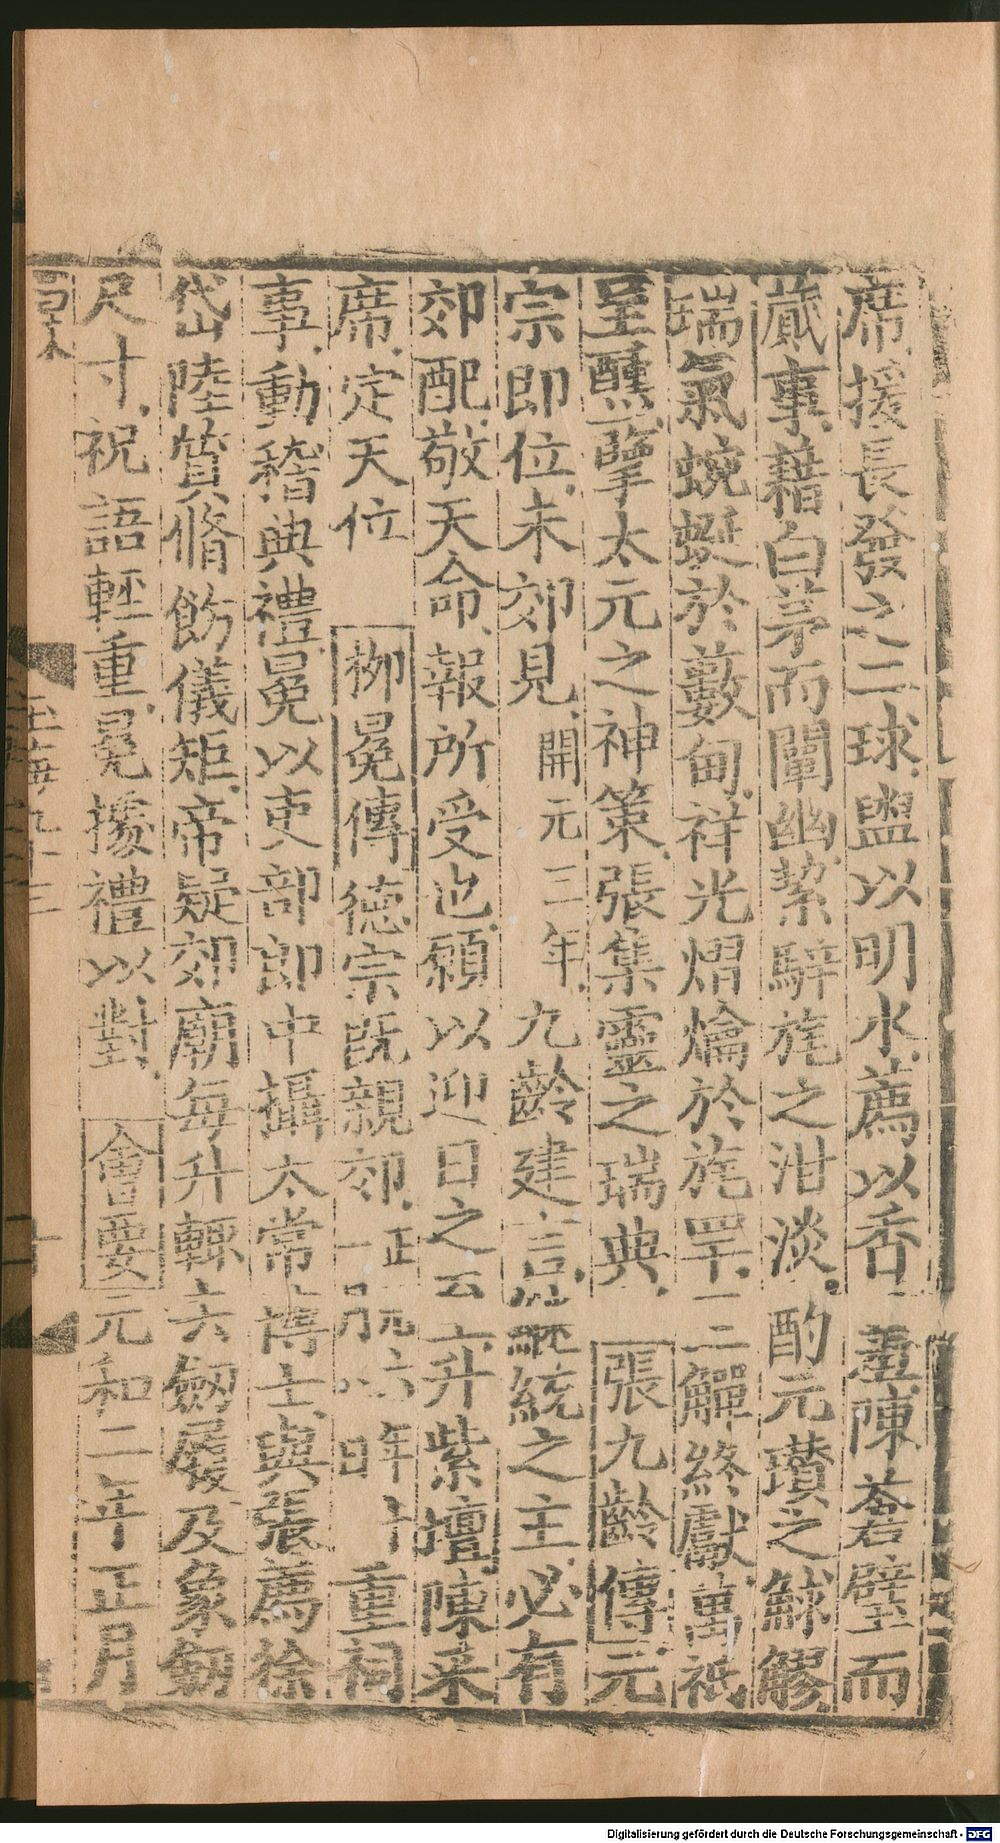 席援長發之三球盥以明水薦以香羞陳蒼璧而
蕆事藉白茅而闡幽絜騂旄之泔淡酌元瓚之觩䚧
瑞氣蜿蜒於藪甸祥光熠爚於旄罕三觶終獻萬祇
呈醺肇太元之神策張集靈之瑞典 張九齡傳元
宗即位未郊見開元三年九齡建言繼統之主必有
郊配敬天命報所受也願以迎日之至升紫壇陳采
席定天位 柳冕傳德宗既親郊正元六年十一月八日重祠
事動稽典禮冕以吏部郎中攝太常博士與張薦徐
岱陸贄脩飭儀矩帝疑郊廟每升輒去劒履及象劒
尺寸祝語輕重冕據禮以對 會要元和二年正月
玉海九十三
Digitalisierung gefördert durch die Deutsche Forschungsgemeinschaft - DFG